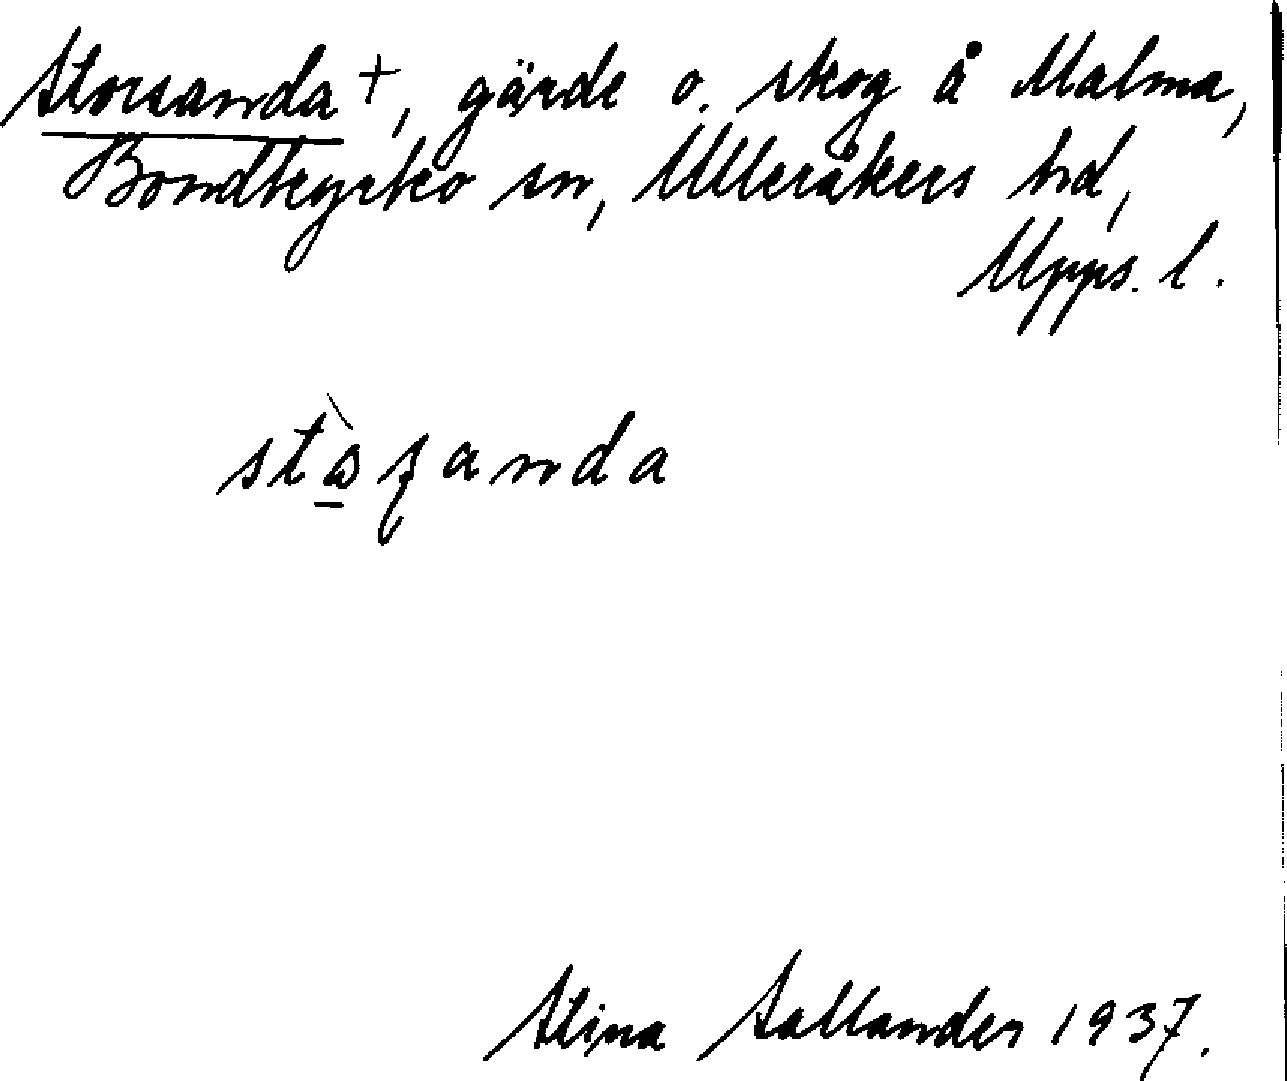 Storsanda +, gärde o. skog å Malma,
Bondkyrko sn, Ulleråkers hd,
Upps. l.
Stina Sallander 1937.